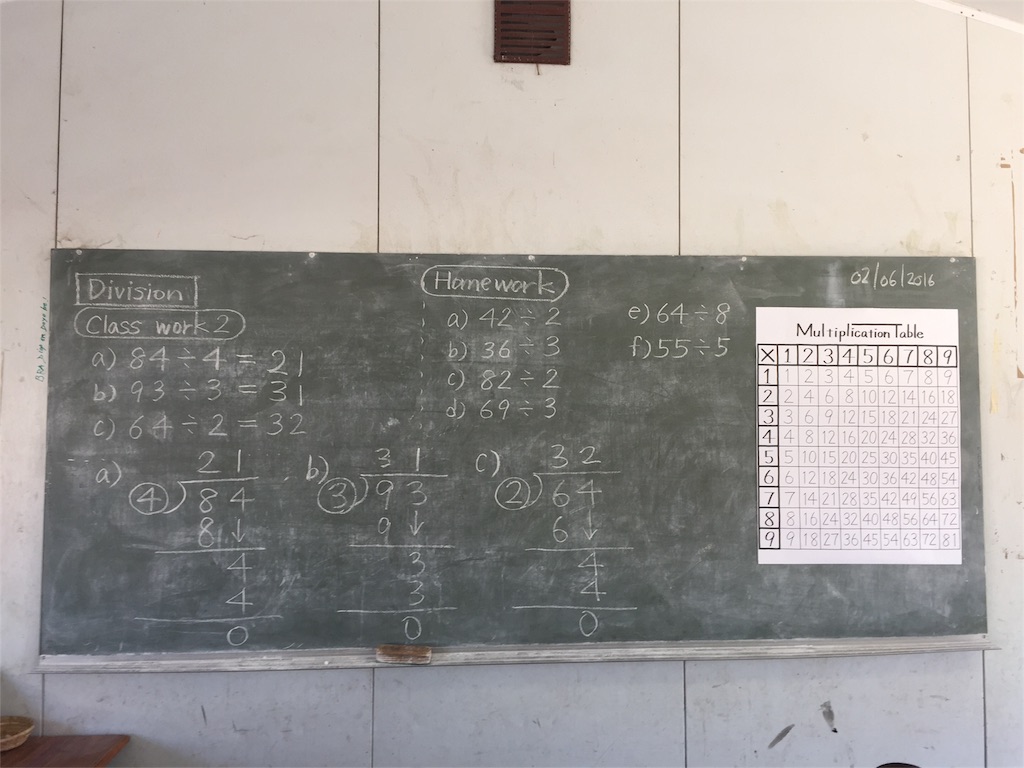 Division
Class work 2
a) 84 ÷ 4 = 21
b) 93 ÷ 3 = 31
c) 64 ÷ 2 = 32
a)
21
4)84
8↓
4
4
0
b)
31
3)93
9↓
3
3
0
c)
32
2)64
6↓
4
4
0
Homework
a) 42 ÷ 2
b) 36 ÷ 3
c) 82 ÷ 2
d) 69 ÷ 3
e) 64 ÷ 8
f) 55 ÷ 5
02/06/2016
Multiplication Table
X 1 2 3 4 5 6 7 8 9
1 1 2 3 4 5 6 7 8 9
2 2 4 6 8 10 12 14 16 18
3 3 6 9 12 15 18 21 24 27
4 4 8 12 16 20 24 28 32 36
5 5 10 15 20 25 30 35 40 45
6 6 12 18 24 30 36 42 48 54
7 7 14 21 28 35 42 49 56 63
8 8 16 24 32 40 48 56 64 72
9 9 18 27 36 45 54 63 72 81